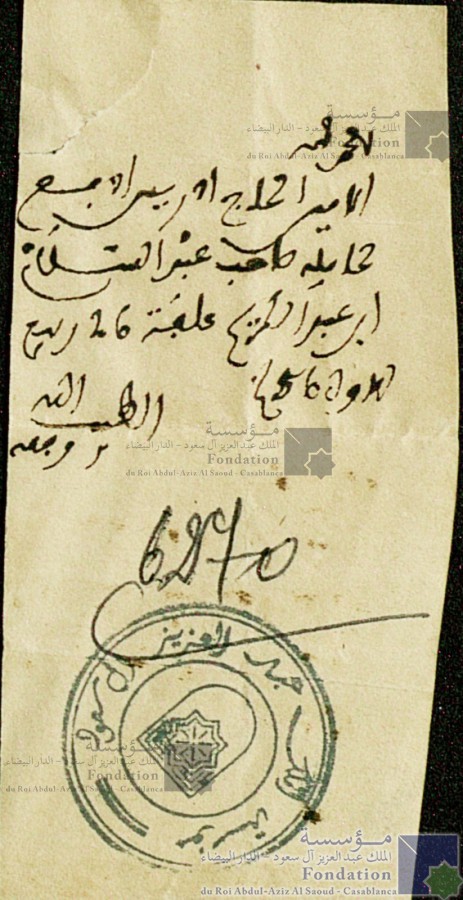 مؤسسة
الملك عبد العزيز آل سعود - الدار البيضاء
Fondation
du Roi Abdul-Aziz Al Saoud - Casablanca
الحمد لله
الامين الحاج ادريس ادفع
لحامله صاحب عبد السلام
ابن عبد الكريم علفة 26 ربيع
الاول
الطيب الله
مؤسسة
الملك عبد العزيز آل سعود - الدار البيضاء
Fondation
du Roi Abdul-Aziz Al Saoud - Casablanca
مؤسسة الملك عبد العزيز آل سعود
مؤسسة
الملك عبد العزيز آل سعود - الدار البيضاء
Fondation
du Roi Abdul-Aziz Al Saoud - Casablanca
مؤسسة
الملك عبد العزيز آل سعود - الدار البيضاء
Fondation
du Roi Abdul-Aziz Al Saoud - Casablanca